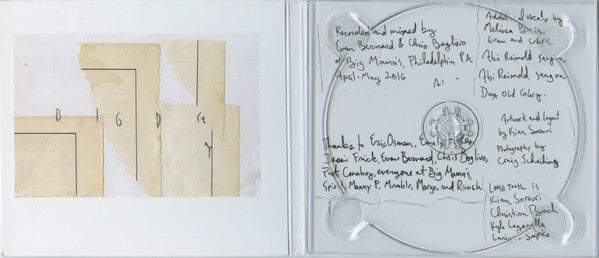 B I G D Ay
Recorded and mixed by
Evan Bernard & Chris Baglivo
at Big Mama's, Philadelphia PA
April-May 2016
Additional vocals by
Melissa
Evan and Chris.
Abi Reimold sang on
Abi Reimold sang on
Days Old Glory.
Artwork and layout
by Kian Sorouri
Photography by
Craig Scheihing
Thanks to Eric Osman,
Evan Bernard, Chris Baglivo,
everyone at Big Mama's,
Manny P, Mumblr, Marge, and Ranch
Loose Tooth is
Kian Sorouri
Christian Bach
Kyle Laganella
Larissa Sapko